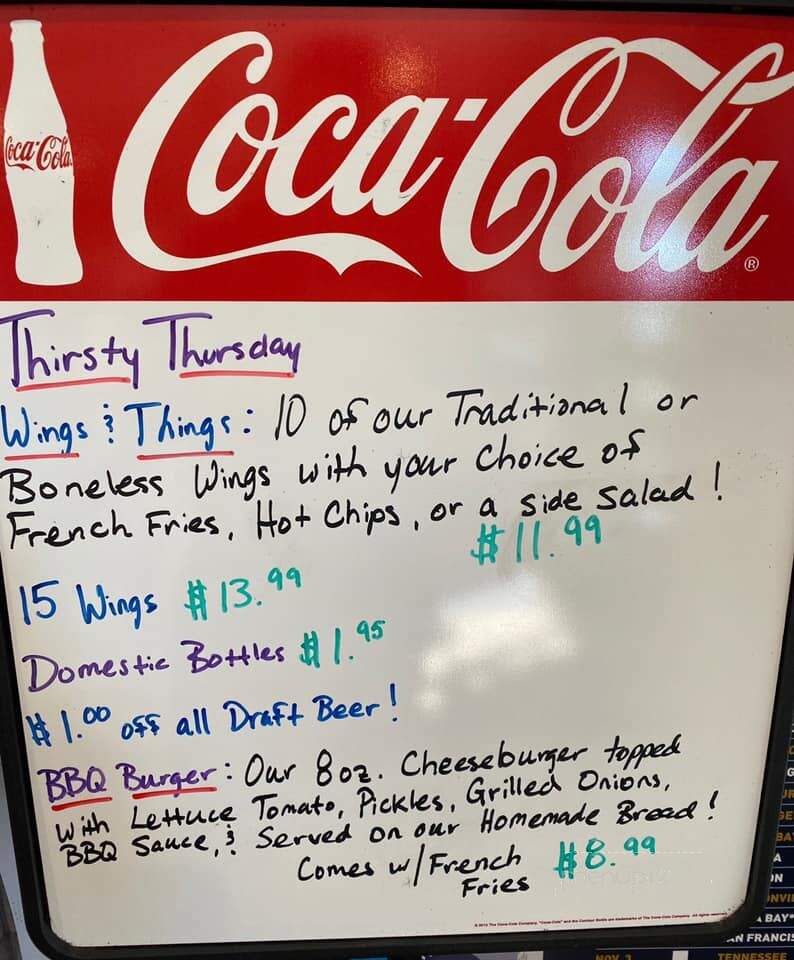 Coca-Cola
Coca-Cola®
Thirsty Thursday
Wings & Things: 10 of our Traditional or
Boneless Wings with your choice of
French Fries, Hot Chips, or a side salad!
$11.99
15 Wings $13.99
Domestic Bottles $1.95
$1.00 off all Draft Beer!
BBQ Burger: Our 8oz. Cheeseburger topped
with Lettuce Tomato, Pickles, Grilled Onions,
BBQ Sauce, & Served on our Homemade Bread!
Comes w/ French Fries $8.99
A BAY
AN FRANCIS
NOV 3
TENNESSEE